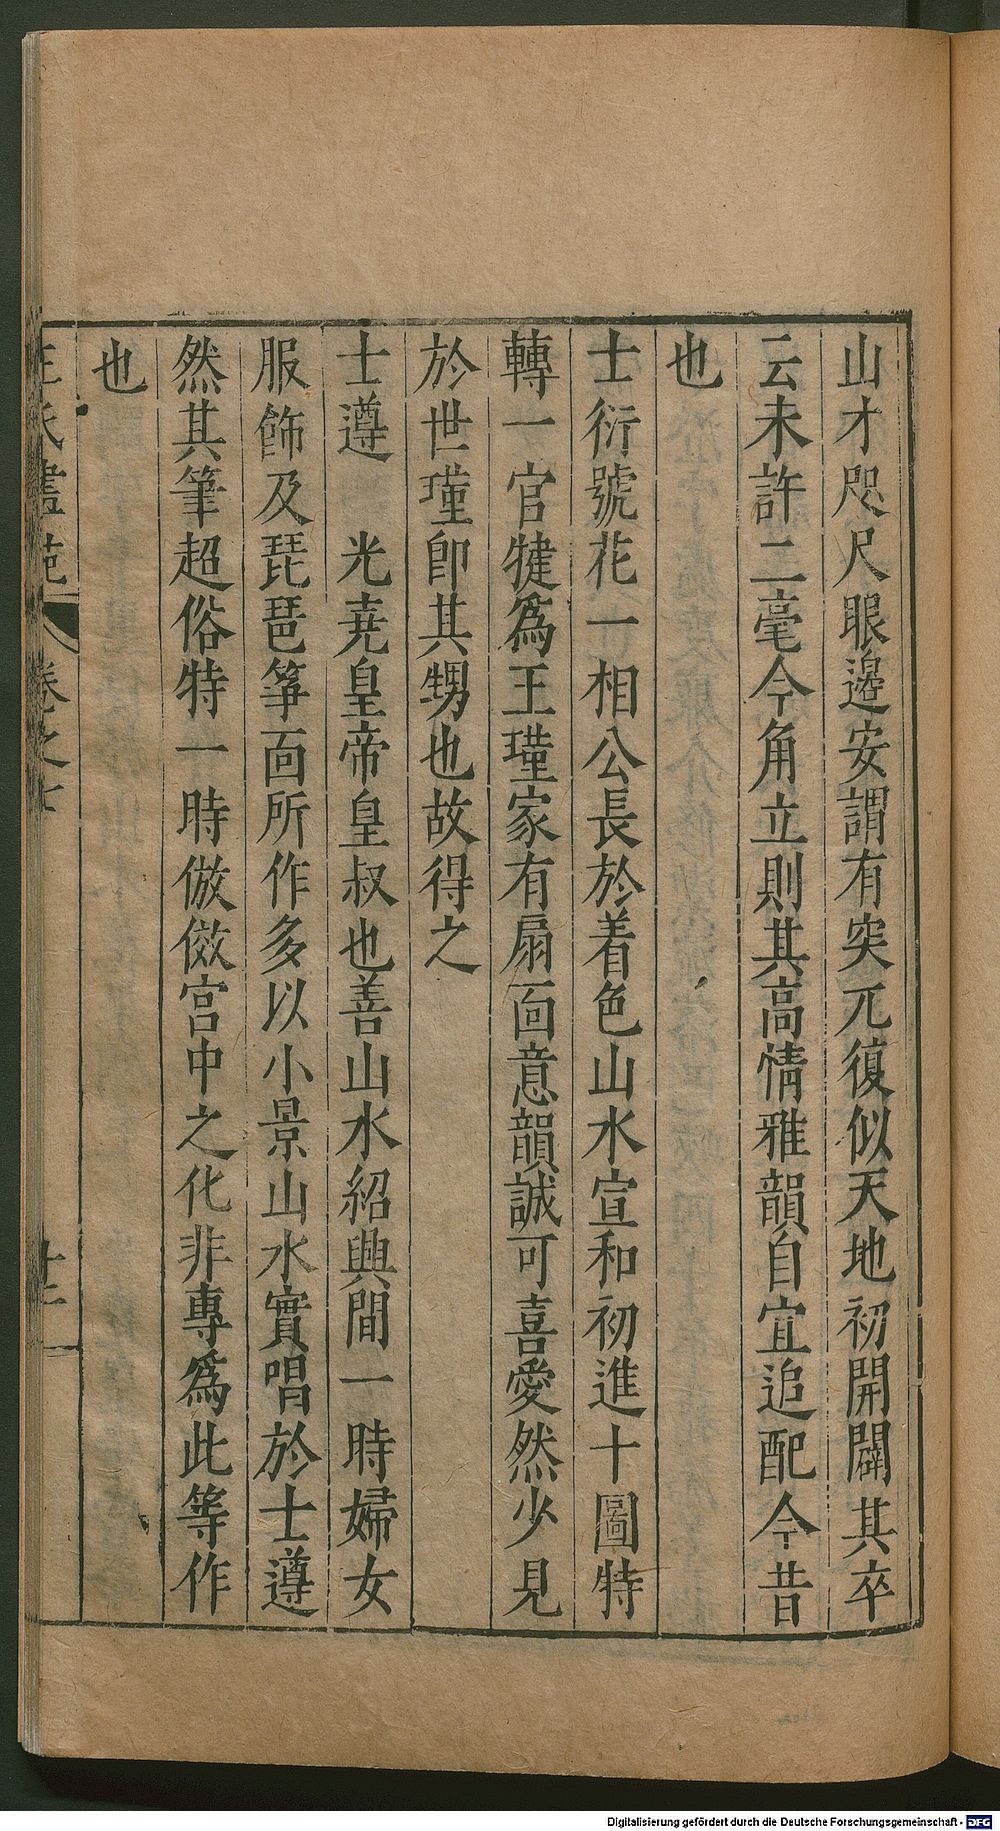 山才咫尺眼邊安謂有突兀復似天地初開闢其卒
云未許二毫今角立則其高情雅韻自宜追配今昔
也
士衍號花一相公長於着色山水宣和初進十圖特
轉一官犍爲王瓘家有扇面意韻誠可喜愛然少見
於世瓘卽其甥也故得之
士遵　光堯皇帝皇叔也善山水紹興間一時婦女
服飾及琵琶箏面所作多以小景山水實唱於士遵
然其筆超俗特一時倣傚宮中之化非專爲此等作
也
王氏畫苑　卷之七　廿二
Digitalisierung gefördert durch die Deutsche Forschungsgemeinschaft - DFG